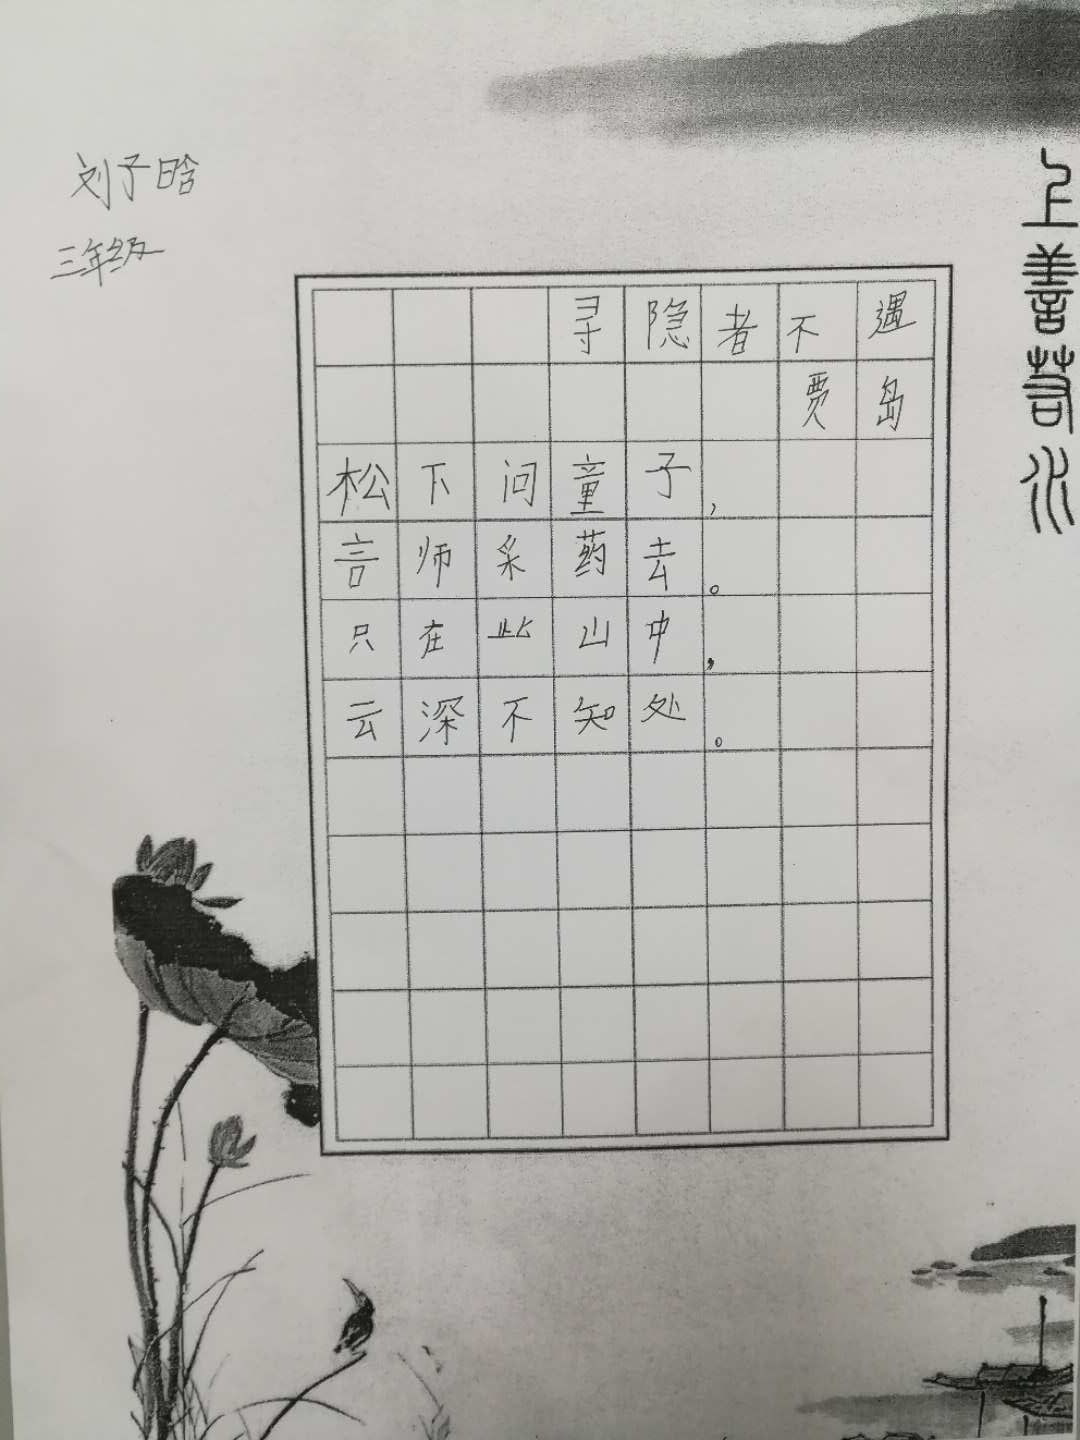 刘子晗
三年级
上善若水
寻隐者不遇
贾岛
松下问童子，
言师采药去。
只在此山中，
云深不知处。